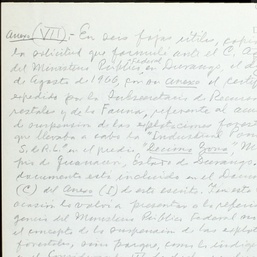 Anexo (VII).- En seis fojas útiles, copia
la solicitud que formulé ante el C. A
del Ministerio Público Federal en Durango, el d
de Agosto de 1966, por su anexo al
expedido por la Subsecretaría de Recursos
restales y de la Fauna, referente al
de suspensión de las explotaciones forest
que llevaba a cabo la "Industria
S. de R.L." en el predio "Decima Zona" M
pio de Guanaceví, Estado de Durango.
documento está incluido en el
(C) del Anexo (I) de este escrito. En esta
ocasión lo volví a presentar a la
gencia del Ministerio Público Federal
el concepto de la suspensión de las
forestales, sino porque, como lo